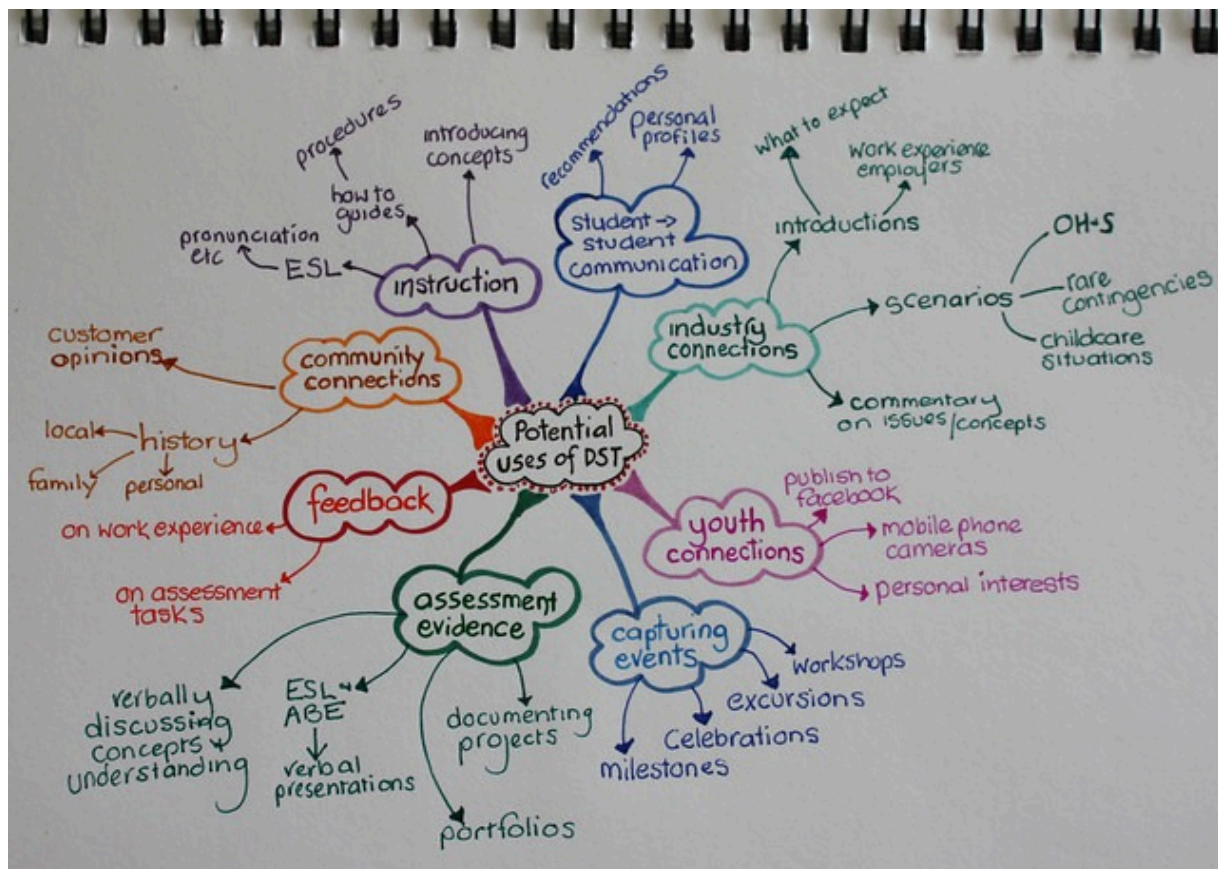 Potential
uses of DST
instruction
introducing
concepts
how to
guides
procedures
ESL
pronunciation
etc
student →
student
communication
recommendations
personal
profiles
industry
connections
introductions
what to expect
work experience
employers
scenarios
OH+S
rare
contingencies
childcare
situations
commentary
on issues/concepts
youth
connections
publish to
facebook
mobile phone
cameras
personal interests
capturing
events
workshops
excursions
Celebrations
milestones
assessment
evidence
documenting
projects
portfolios
ESL +
ABE
verbal
presentations
verbally
discussing
concepts +
understanding
feedback
on work experience
on assessment
tasks
community
connections
customer
opinions
history
local
family
personal